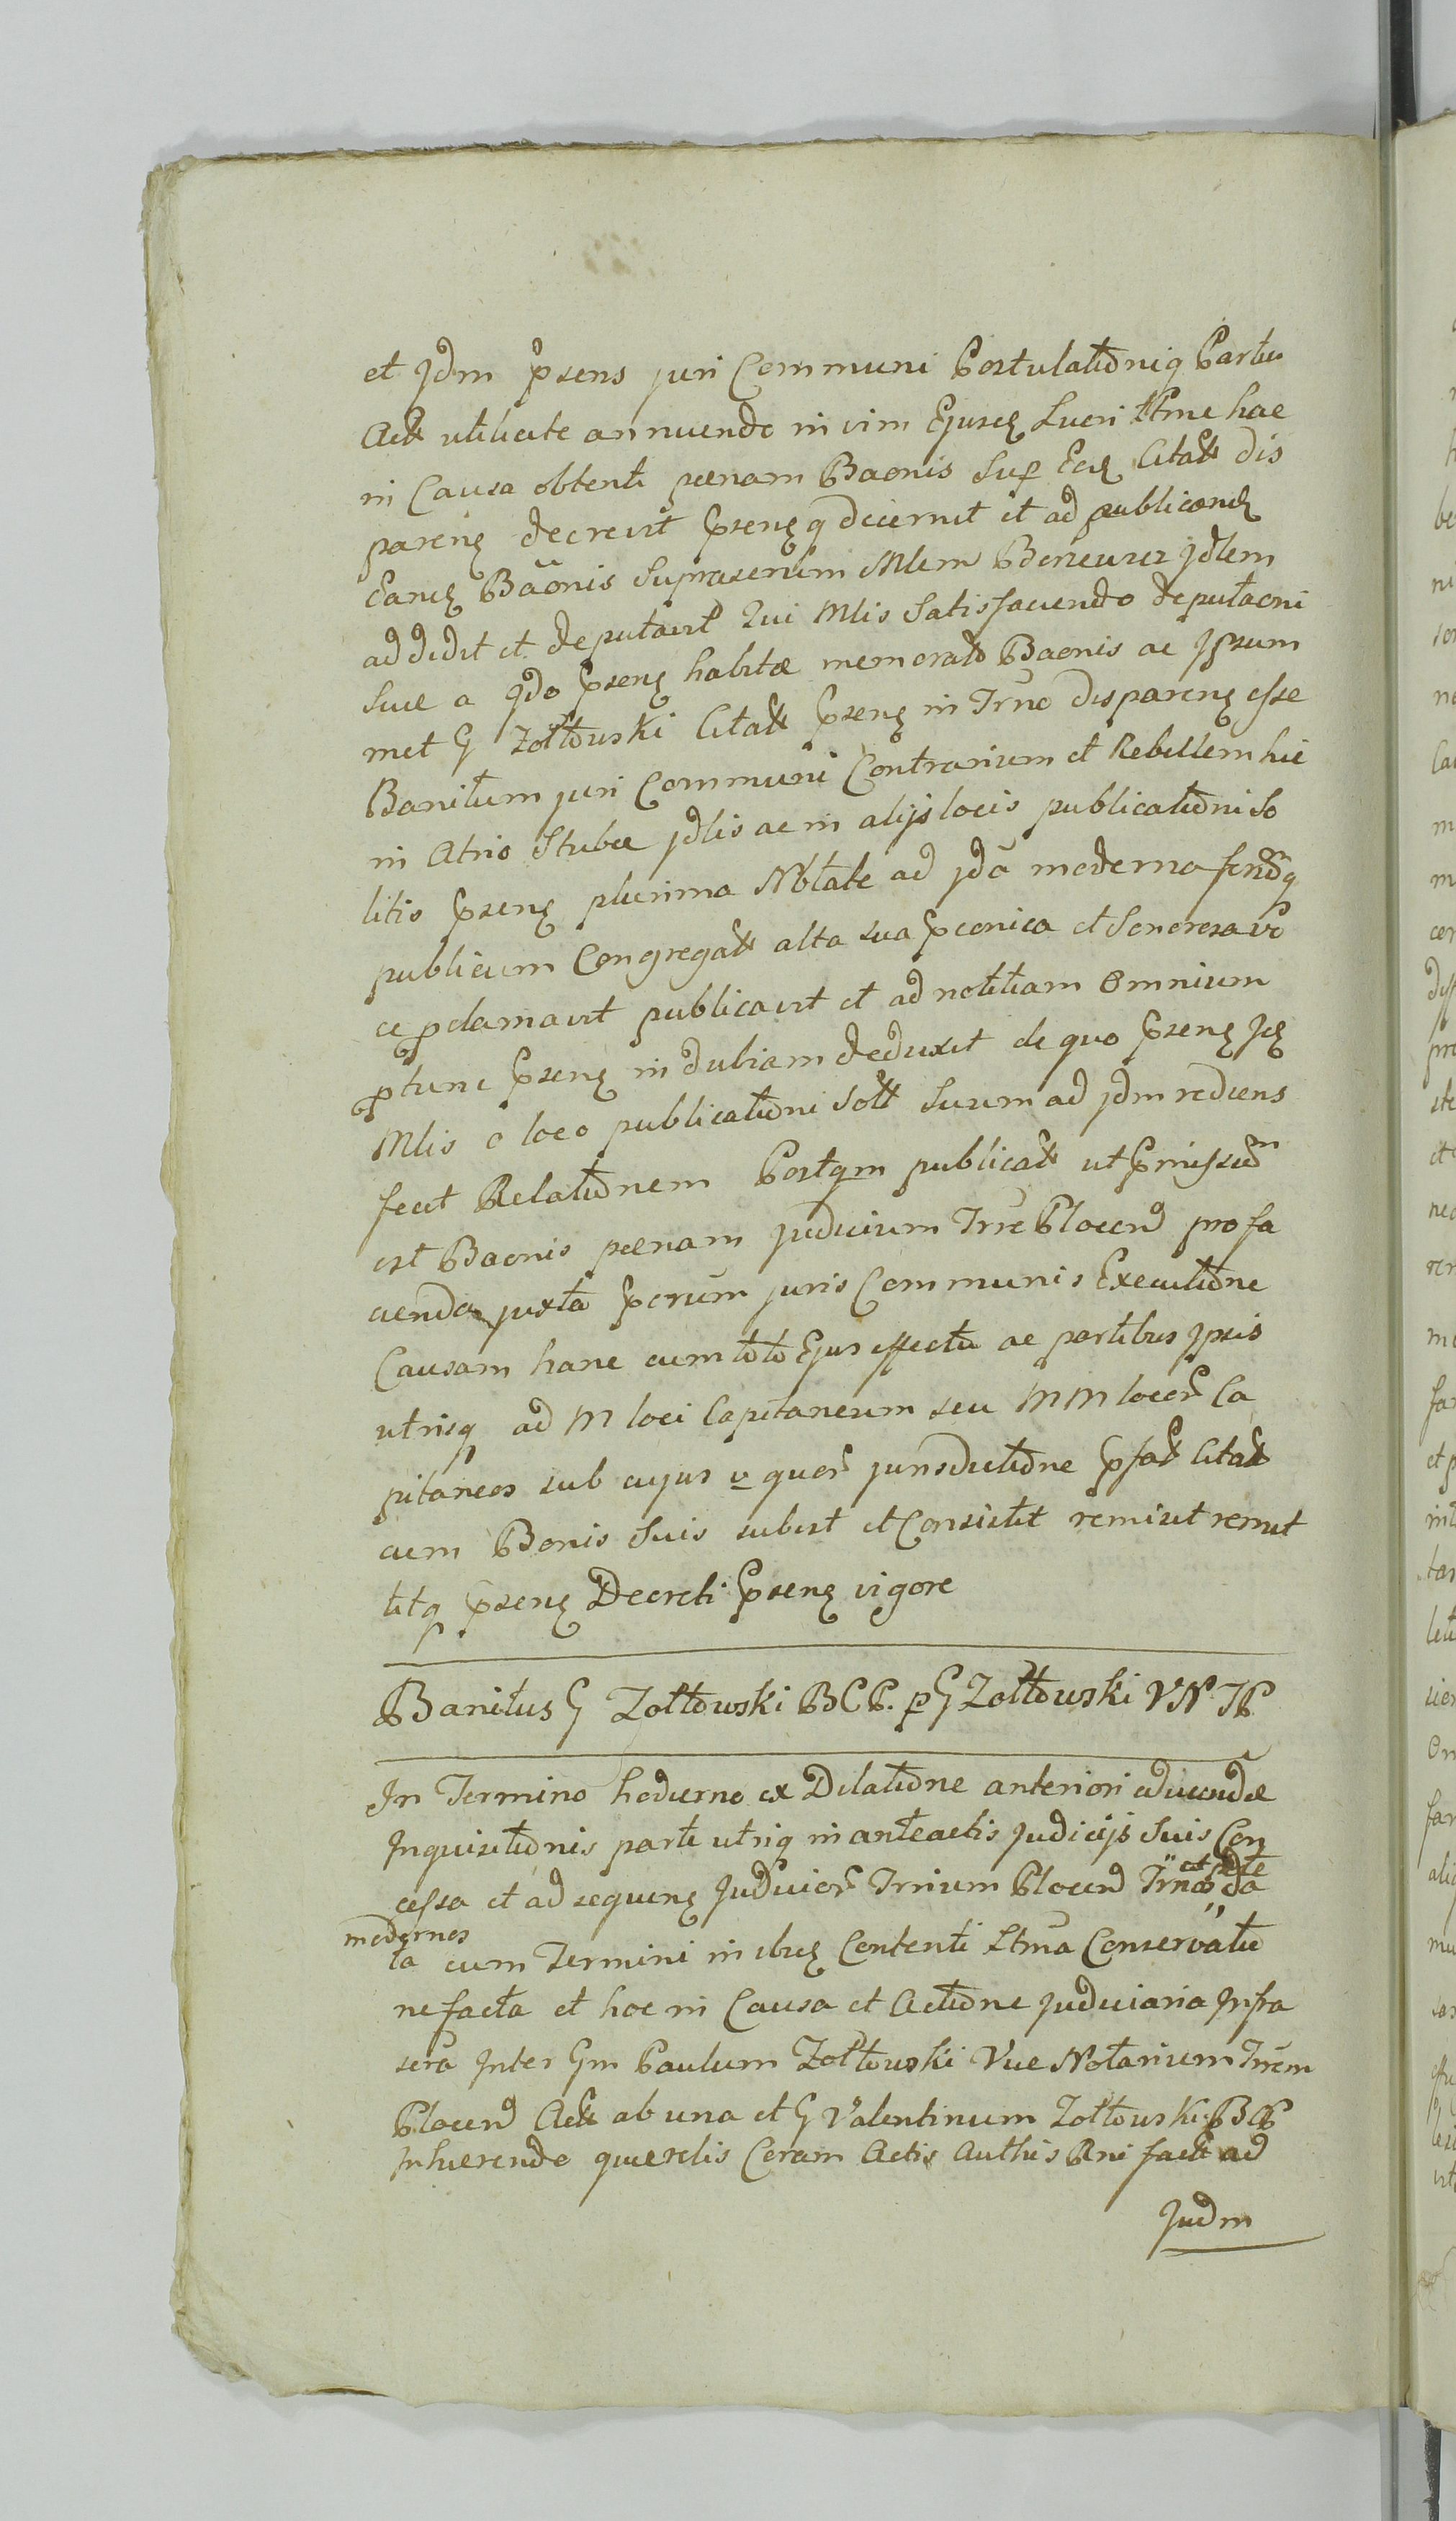 et Jdm Psens juri Communi Postulationiq Partis
Act utilicete annuendo in vim Ejusq Lucri Ttme hac
in Causa obtenti poenam Baonis Sup Eq Citat dis
pareng decrevit Pseng q decernit et ad publicandq
Eandq Baonis Suprascrium Mlem Berreurer Jdlem
addidit et deputavit Qui Mlis Satisfaciendo deputaoni
Suae a Jdo Pseng habitae memorato Baonis ac Jpsum
met G Zołtowski Citat Pseng in Trno dispareng esse
Banitum juri Communi Contrarium et Rebellem hic
in Atrio Stubae Jdlis ac in alijs locis publicationi So
litis Pseng plurima Nbtate ad Jda moderna frndq
publicum Congregat alta sua Pconica et Sonorosa vo
ce pclamavit publicavit et ad notitiam Omnium
ptunc Pseng in dubiam deduxit de quo Pseng Jq
Mlis o loco publicationi Solt Suum ad Jdm rediens
fecit Relationem Postqm publicat ut Pmissum
est Baonis poenam judicium Trre Plocen pro fa
cienda juxta Pscrum juris Communis Executione
Causam hanc cum toto Ejus effectu ac partibus Jpsis
utrisq ad M loci Capitaneum seu MM locor Ca
pitaneos sub cujus v quor jurisdictione Pfat Citat
cum Bonis Suis subest et Consistit remisit remit
titq Pseng Decreti Pseng vigore
Banitus G Zołtowski BCP. p G Zołtowski VN TP
In Termino hodierno ex Dilatione anteriori educendae
Inquisitionis parti utriq in anteactis Judicijs Suis Con
cessa et ad sequeng Judicior Trrium Plocen Trnos et da
modernos
ta cum Termini in ibq Contenti Ltma Conservatio
ne facta et hoc in Causa et Actione Judiciaria Infra
scra Inter Gm Paulum Zołtowski Vice Notarium Trrem
Plocen Act ab una et G Valentinum Zołtowski BCP
Inhaerendo quaerelis Coram Actis Authis Rni fact ad
Judm